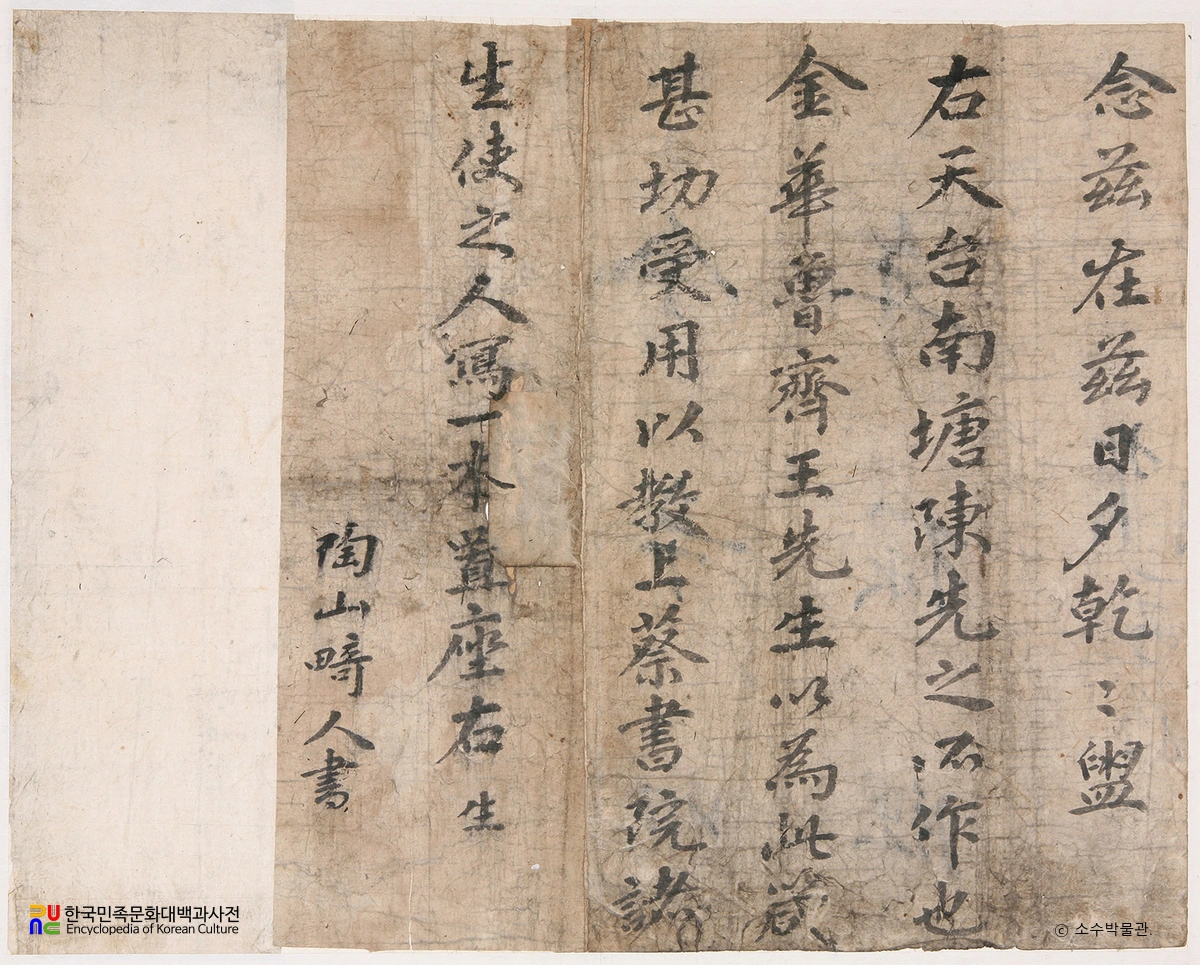 念茲在茲日夕乾〻盥
右天台南塘陳先之所作也
金華魯齊王先生以為此箴
甚切受用以教上蔡書院諸
生使之人寫一本置座右 生
陶山畸人書
한국민족문화대백과사전
Encyclopedia of Korean Culture
ⓒ 소수박물관.